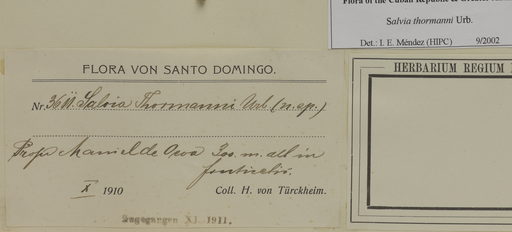 Flora of the Cuban Republic & Greater
Salvia thormanni Urb.
Det.: I. E. Méndez (HIPC) 9/2002
HERBARIUM REGIUM
FLORA VON SANTO DOMINGO.
Nr. Salvia Thormanni Urb. (n. sp.)
Prope Maniel de Ocoa 300 m. alt in
fruticetis.
X 1910 Coll. H. von Türckheim.
Eingegangen XI. 1911.